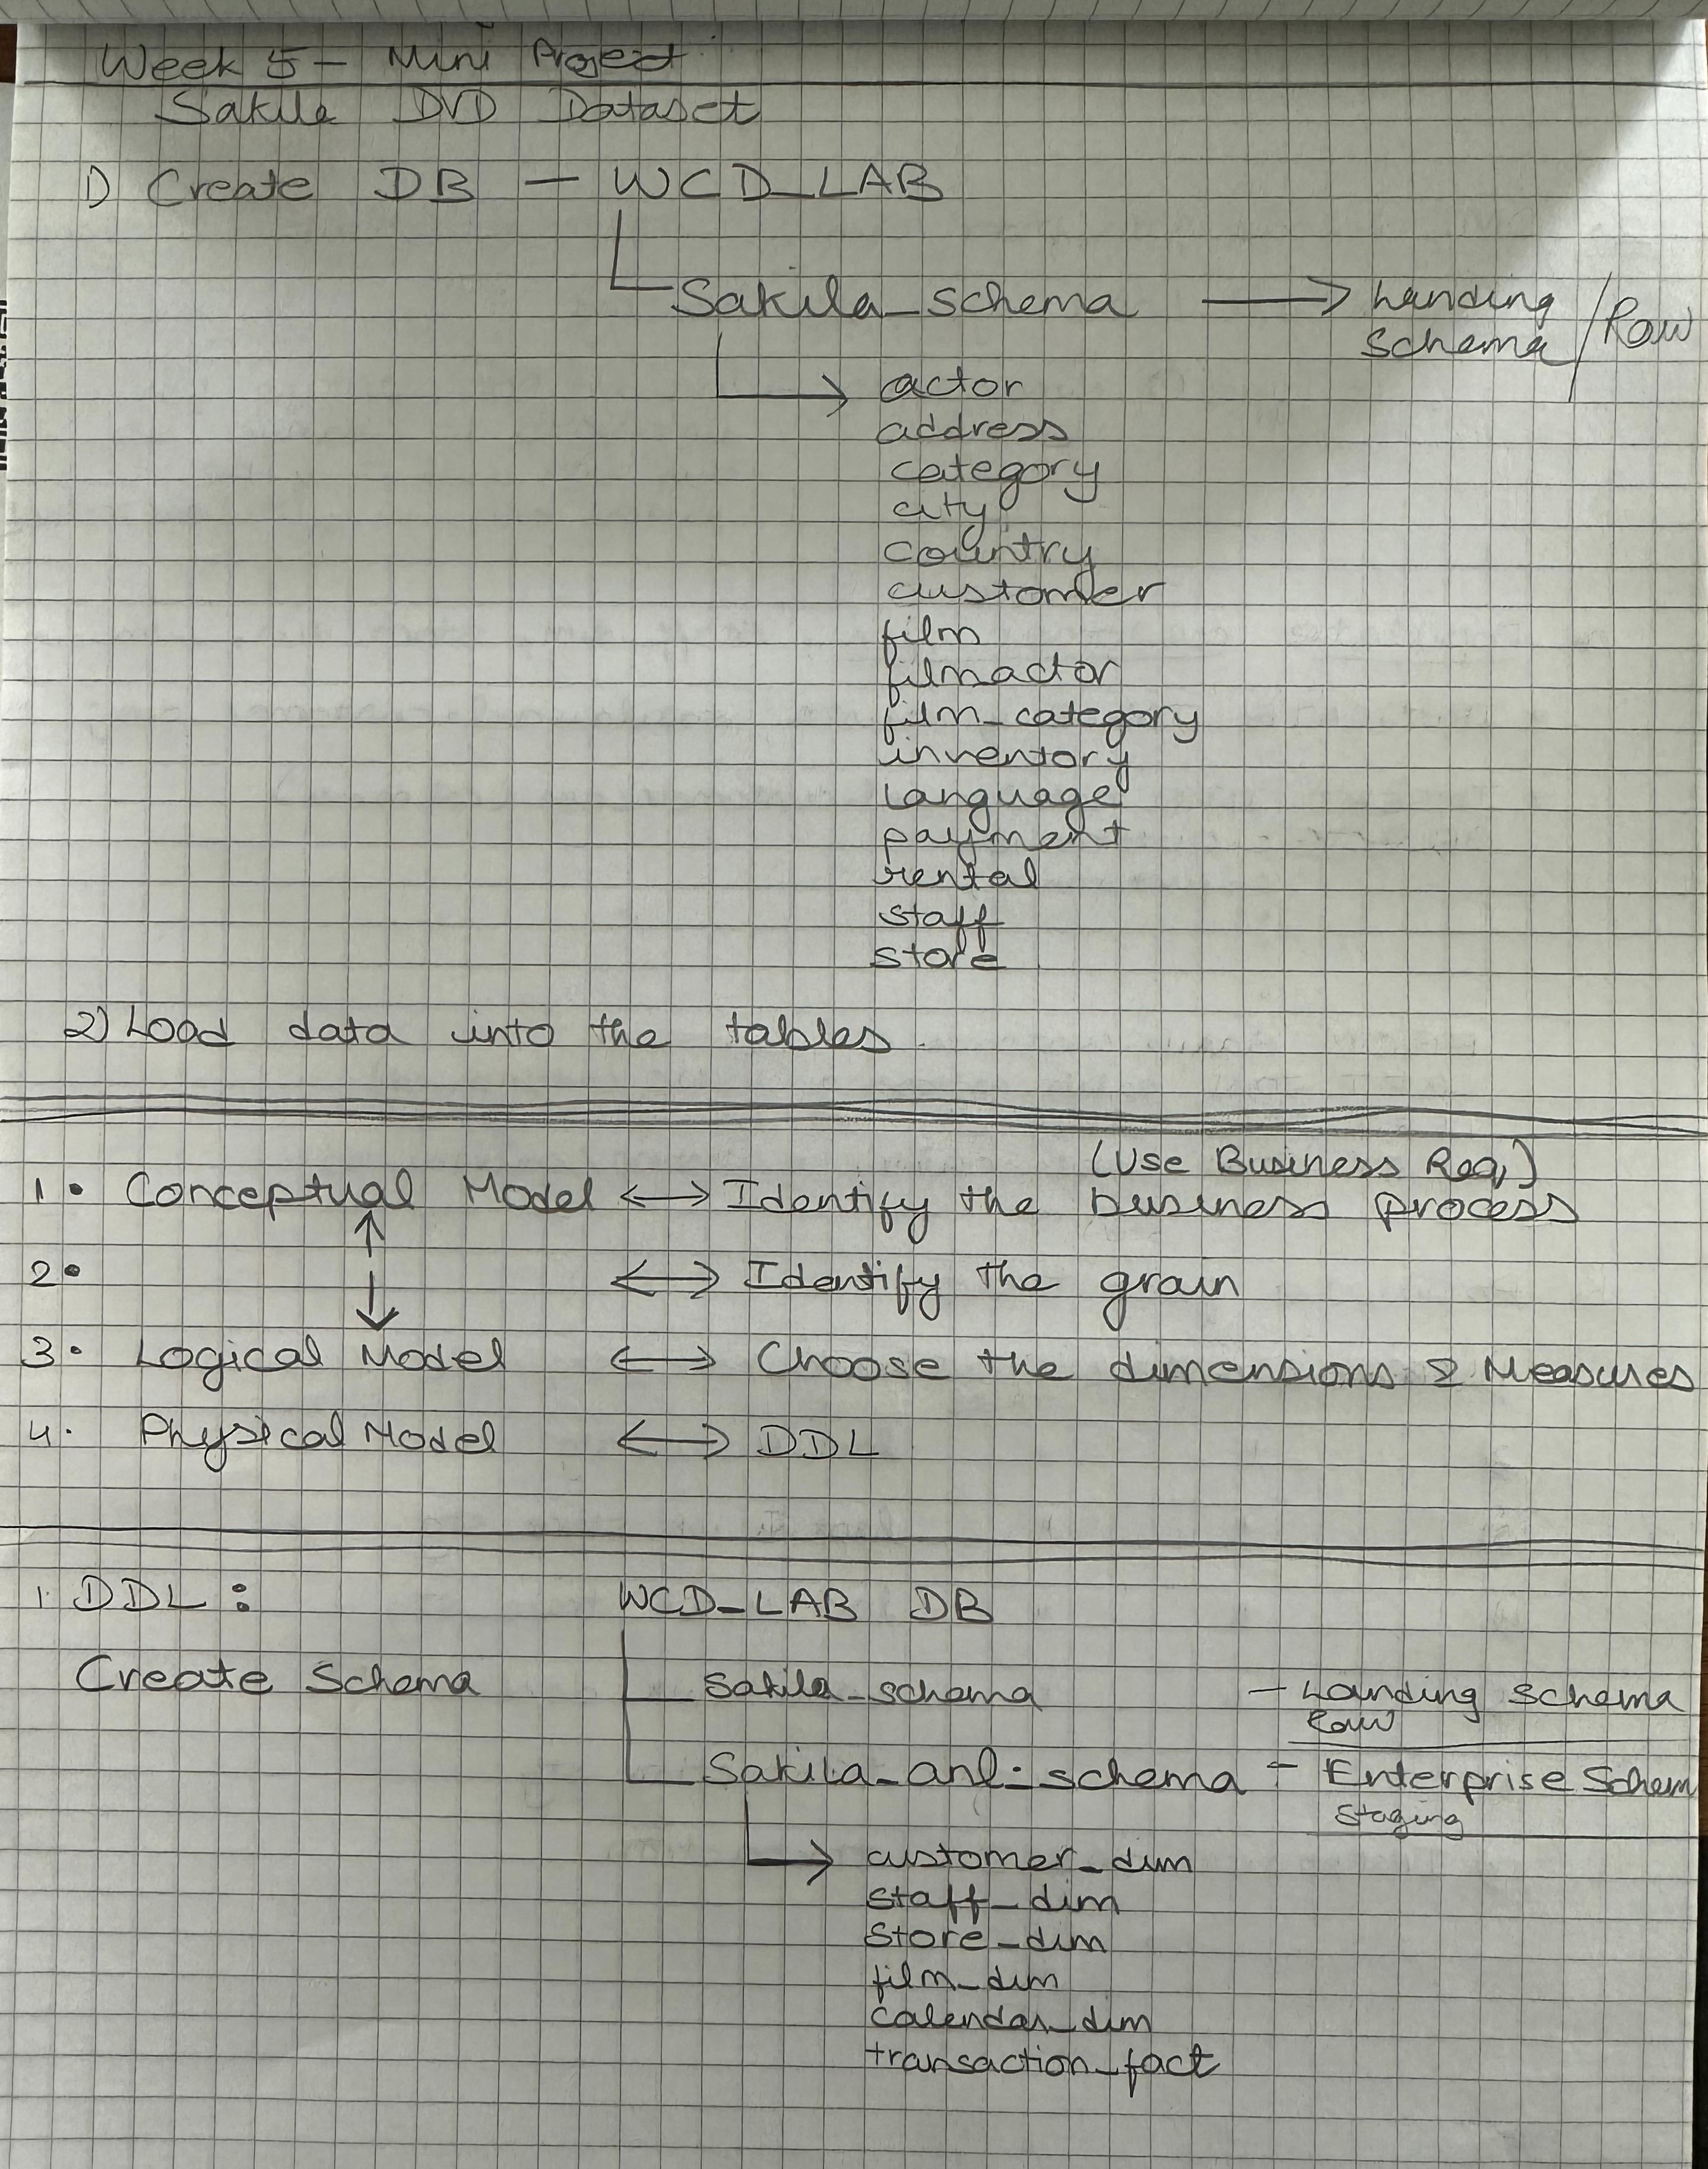 Week 5 - Mini Project
Sakila DVD Dataset
1) Create DB - WCD_LAB
Sakila_schema → Landing schema / Raw
actor
address
category
city
country
customer
film
filmactor
film_category
inventory
language
payment
rental
staff
store
2) Load data into the tables.
(Use Business Req,)
1. Conceptual Model ↔ Identify the business process
2. ↔ Identify the grain
3. Logical Model ↔ Choose the dimensions & Measures
4. Physical Model ↔ DDL
1. DDL : WCD_LAB DB
Create Schema Sakila_schema - Landing schema
Raw
Sakila_anl_schema - Enterprise Schem
Staging
customer_dim
staff_dim
store_dim
film_dim
calendar_dim
transaction_fact